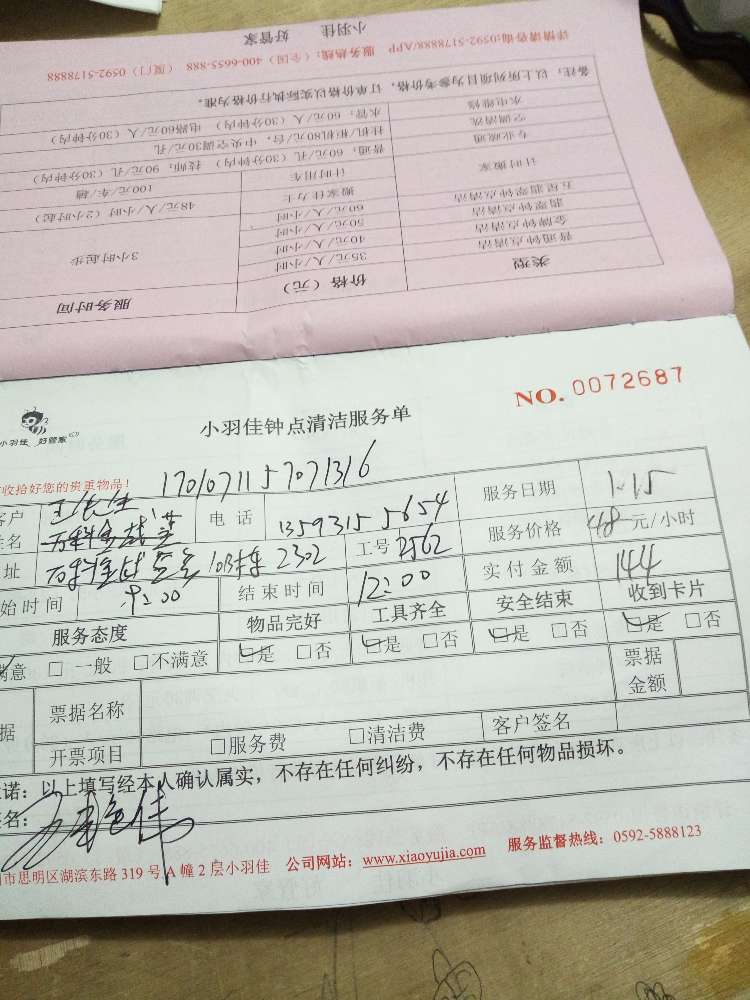 小羽佳 好管家
详情请咨询:0592-5178888/APP 服务热线：(全国) 400-6655-888 (厦门) 0592-5178888
备注：以上所列项目为参考价格，订单价格以实际执行价格为准。
类型 价格（元） 服务时间
普通钟点清洁 35元/人/小时 3小时起步
金牌钟点清洁 40元/人/小时
翡翠钟点清洁 50元/人/小时
五星翡翠钟点清洁 60元/人/小时
计时搬家 搬家佳力士 48元/人/小时（2小时起）
计时用车 100元/车/趟
专业疏通 普通，60元/孔（30分钟内） 技师，90元/孔（30分钟内）
空调清洗 挂机/柜机80元/台，中央空调30元/孔
水电维修 水管，60元/人（30分钟内） 电路60元/人（30分钟内）
NO. 0072687
小羽佳 好管家
小羽佳钟点清洁服务单
收拾好您的贵重物品！ 1701071157071316
客户 电话 13593155654 服务日期 1.15
姓名 服务价格 48 元/小时
址 2302 工号 2562 实付金额 144
始时间 9:00 结束时间 12:00
服务态度 物品完好 工具齐全 安全结束 收到卡片
满意 □ 一般 □不满意 □是 □否 □是 □否 □是 □否 □是 □否
据 票据名称 票据金额
开票项目 □服务费 □清洁费 客户签名
诺：以上填写经本人确认属实，不存在任何纠纷，不存在任何物品损坏。
签名：
市思明区湖滨东路 319 号 A 幢 2 层小羽佳 公司网站：www.xiaoyujia.com 服务监督热线：0592-5888123